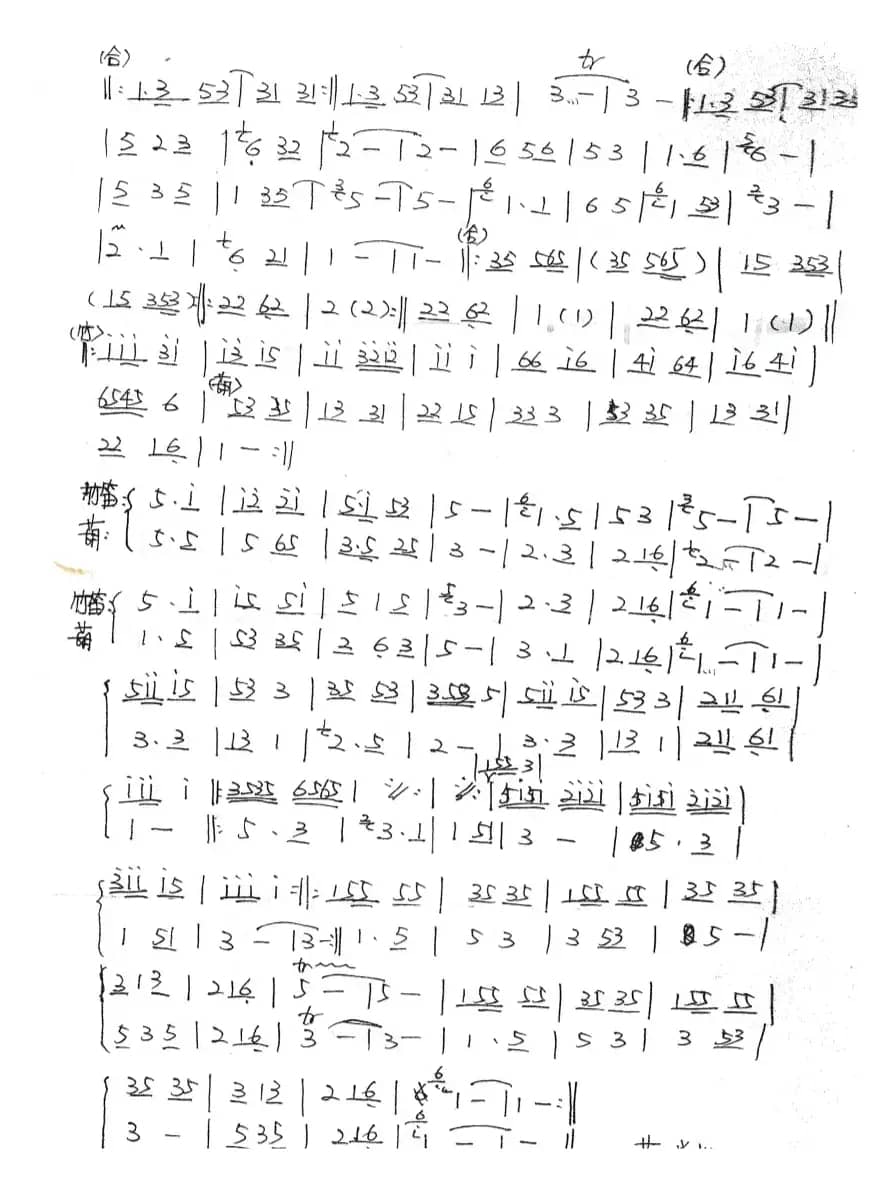 (合) tr (合)
‖: 1·3 53 | 31 31 :‖ 1·3 53 | 31 13 | 3… - | 3 - ‖: 1·3 53 | 31 35
| 5 2 3 | 6 32 | 2 - | 2 - | 6 56 | 5 3 | 1·6 | 6 - |
| 5 3 5 | 1 35 | 5 - | 5 - | 1·1 | 6 5 | 1 53 | 3 - |
(合)
| 2·1 | 6 21 | 1 - | 1 - ‖: 35 565 | (35 565) | 15 353 |
(15 353) :‖: 22 62 | 2 (2) :‖ 22 62 | 1 (1) | 22 62 | 1 (1) ‖
(竹)
‖: i̇i̇i̇ 3̇i̇ | i̇3̇ i̇5 | i̇i̇ 3̇2̇i̇2̇ | i̇i̇ i̇ | 66 i̇6 | 4i̇ 64 | i̇6 4i̇ |
(葫)
6545 6 | 53 35 | 13 31 | 22 15 | 33 3 | 53 35 | 13 31 |
22 16 | 1 - :‖
竹笛: 5·i̇ | i̇2̇ 2̇i̇ | 5·i̇ 53 | 5 - | 1·5 | 5 3 | 5 - | 5 - |
葫: 5·5 | 5 65 | 3·5 25 | 3 - | 2·3 | 2 16 | 2… - | 2 - |
竹笛: 5·i̇ | i̇5 5i̇ | 5 1 5 | 3 - | 2·3 | 2 16 | 1 - | 1 - |
葫 1·5 | 53 35 | 2 6 3 | 5 - | 3·1 | 2 16 | 1… - | 1 - |
5i̇i̇ i̇5 | 53 3 | 35 53 | 3353 5 | 5i̇i̇ i̇5 | 53 3 | 211 61 |
3·3 | 13 1 | 2·5 | 2 - | 3·3 | 13 1 | 211 61 |
| 155 3 |
i̇i̇i̇ i̇ ‖: 3535 6565 | ·//· | ·//· | 5i̇5i̇ 2̇i̇2̇i̇ | 5i̇5i̇ 2̇i̇2̇i̇ |
1 - ‖: 5·3 | 3·1 | 1 51 | 3 - | 5·3 |
3̇i̇i̇ i̇5 | i̇i̇i̇ i̇ :‖: 155 55 | 35 35 | 155 55 | 35 35 |
1 51 | 3 - | 3 - :‖ 1·5 | 5 3 | 3 53 | 5 - |
tr
3 1 3 | 2 16 | 5 - | 5 - | 155 55 | 35 35 | 155 55 |
tr
5 3 5 | 2 16 | 3 - | 3 - | 1·5 | 5 3 | 3 53 |
35 35 | 3 13 | 2 16 | 1 - | 1 - :‖
3 - | 535 | 216 | 1 - | 1 - ‖